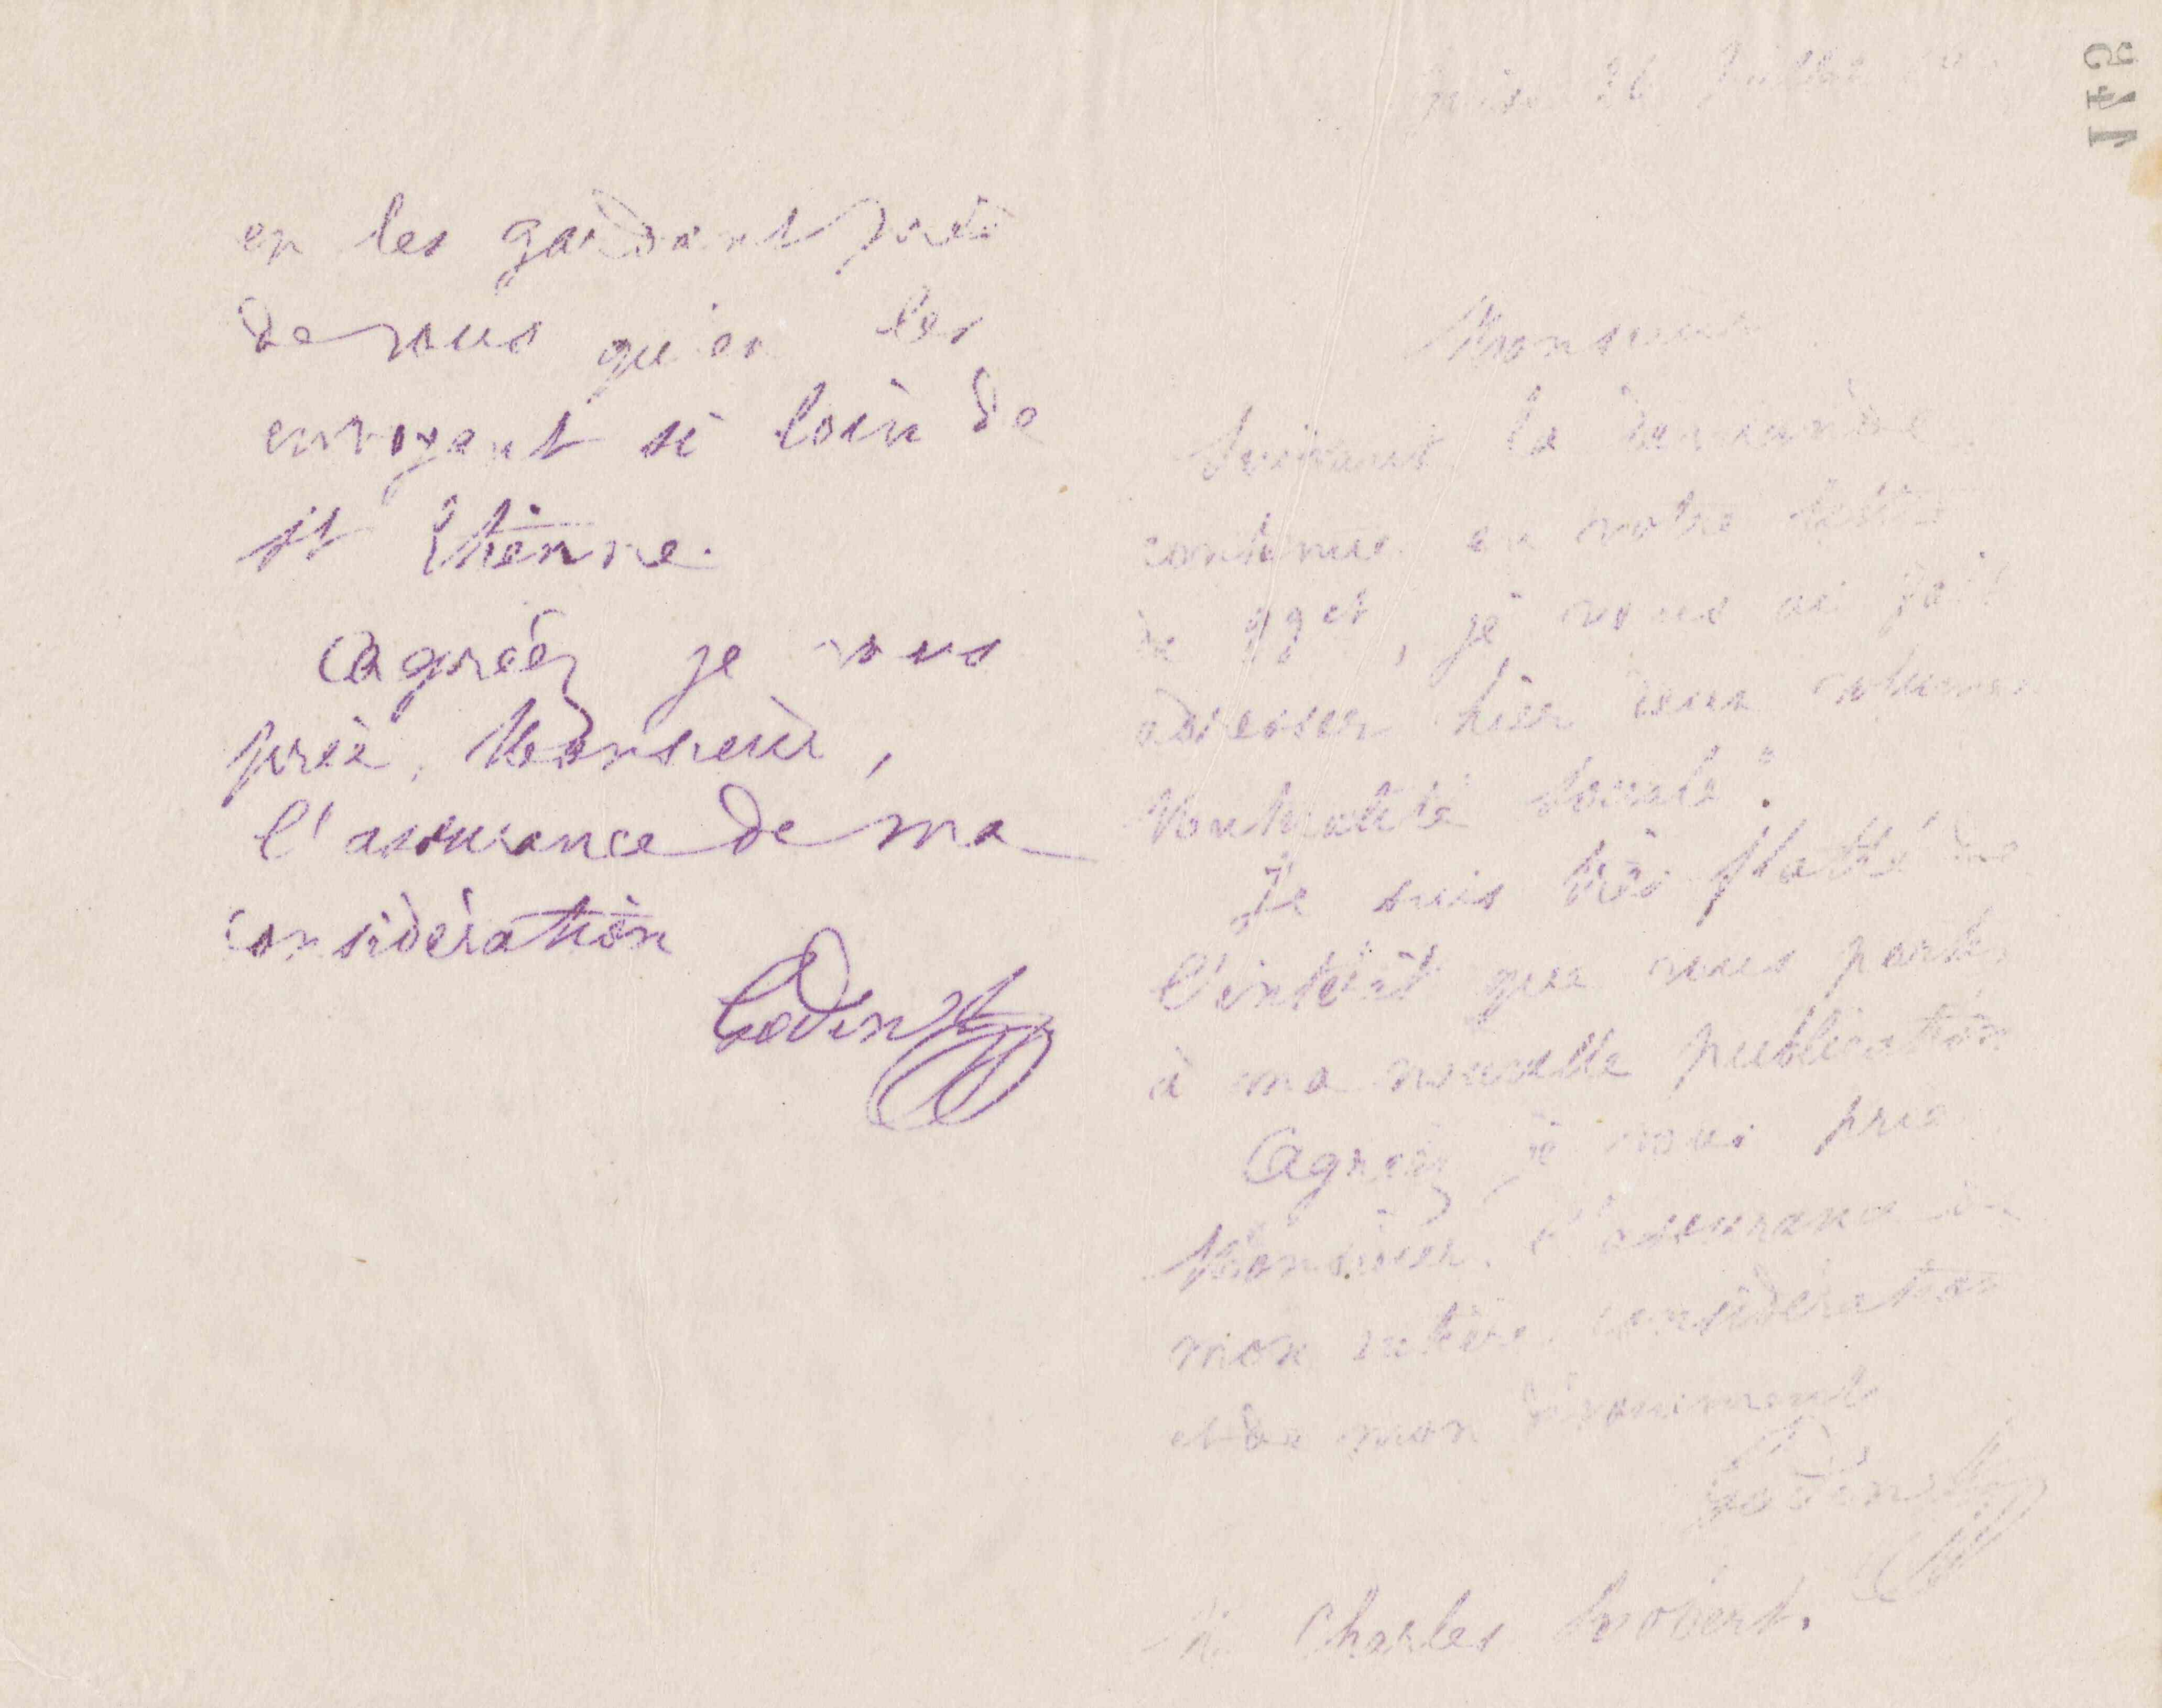 en les gardant près
de vous qu'en les
envoyant si loin de
St Etienne.
Agréez je vous
prie, Monsieur,
l'assurance de ma
considération
Godin
145
26 Juillet
Monsieur
Suivant la demande
contenue en votre lettre
de 99et, je vous ai fait
adresser hier deux volumes
Mutualité Sociale".
Je suis très flatté de
l'intérêt que vous portez
à ma nouvelle publication
Agréez je vous prie
Monsieur, l'assurance de
mon entière considération
et de mon dévouement
Godin
M. Charles